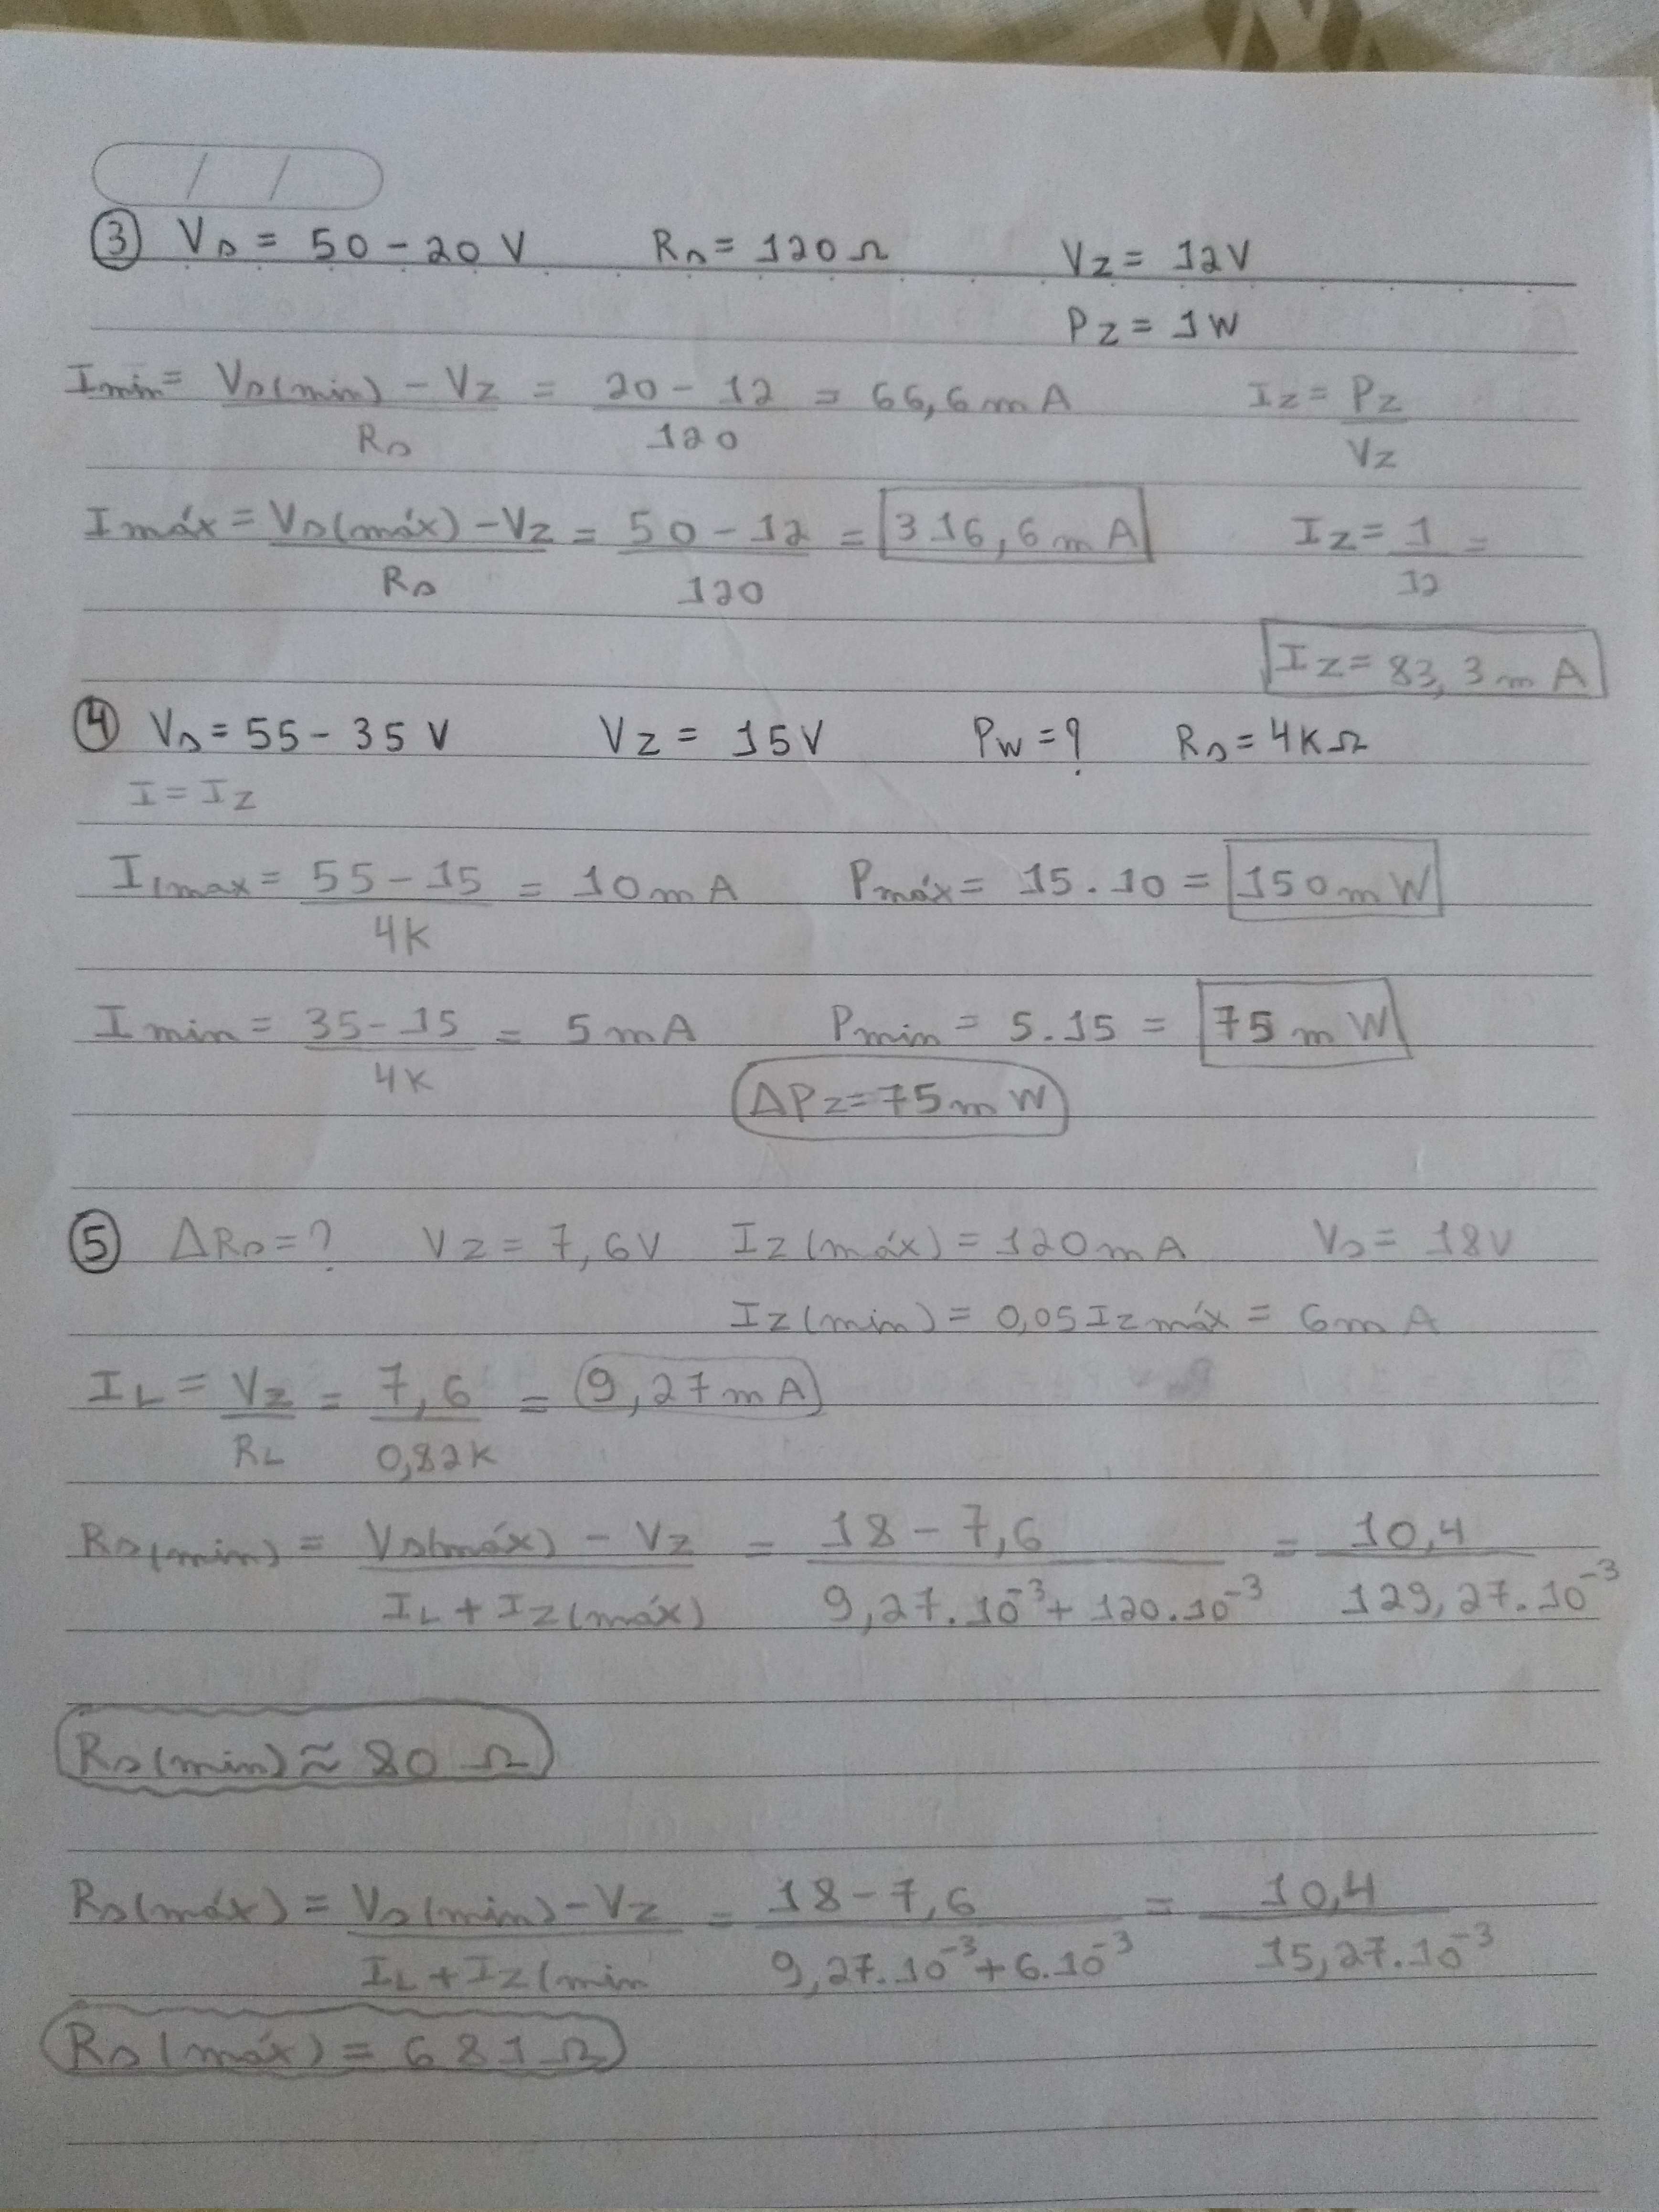 / /
③ Vs = 50 - 20 V Rs = 120 Ω Vz = 12V
Pz = 1W
Imin = Vs(min) - Vz / Rs = 20 - 12 / 120 = 66,6 mA Iz = Pz / Vz
Imáx = Vs(máx) - Vz / Rs = 50 - 12 / 120 = 316,6 mA Iz = 1 / 12 =
Iz = 83,3 mA
④ Vs = 55 - 35 V Vz = 15V Pw = ? Rs = 4KΩ
I = Iz
I(max = 55 - 15 / 4K = 10 mA Pmáx = 15 . 10 = 150 mW
Imin = 35 - 15 / 4K = 5 mA Pmin = 5 . 15 = 75 mW
ΔPz = 75 mW
⑤ ΔRs = ? Vz = 7,6V Iz(máx) = 120 mA Vs = 18V
Iz(min) = 0,05 Iz máx = 6 mA
IL = Vz / RL = 7,6 / 0,82K = 9,27 mA
Rs(min) = Vs(máx) - Vz / IL + Iz(máx) = 18 - 7,6 / 9,27.10⁻³ + 120.10⁻³ = 10,4 / 129,27.10⁻³
Rs(min) ≈ 80 Ω
Rs(máx) = Vs(min) - Vz / IL + Iz(min = 18 - 7,6 / 9,27.10⁻³ + 6.10⁻³ = 10,4 / 15,27.10⁻³
Rs(máx) = 681 Ω